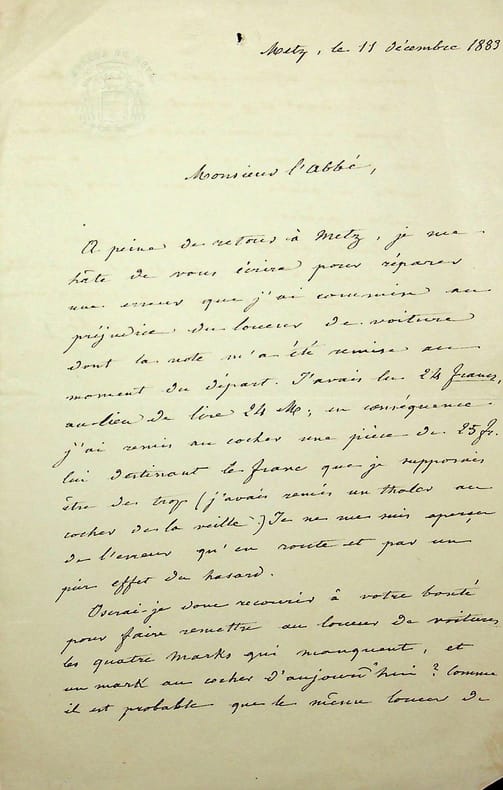 Metz, le 11 décembre 1883
Monsieur l'Abbé,
A peine de retour à Metz, je me
hâte de vous écrire pour réparer
une erreur que j'ai commise au
préjudice du loueur de voiture
dont la note m'a été remise au
moment du départ. J'avais lu 24 francs,
au lieu de lire 24 M; en conséquence
j'ai remis au cocher une pièce de 25 fr.
lui destinant le franc que je supposais
être de trop (j'avais remis un thaler au
cocher de la veille.) Je ne me suis aperçu
de l'erreur qu'en route et par un
pur effet du hasard.
Oserai-je donc recourir à votre bonté
pour faire remettre au loueur de voitures
les quatre marks qui manquent, et
un mark au cocher d'aujourd'hui? Comme
il est probable que le même loueur de